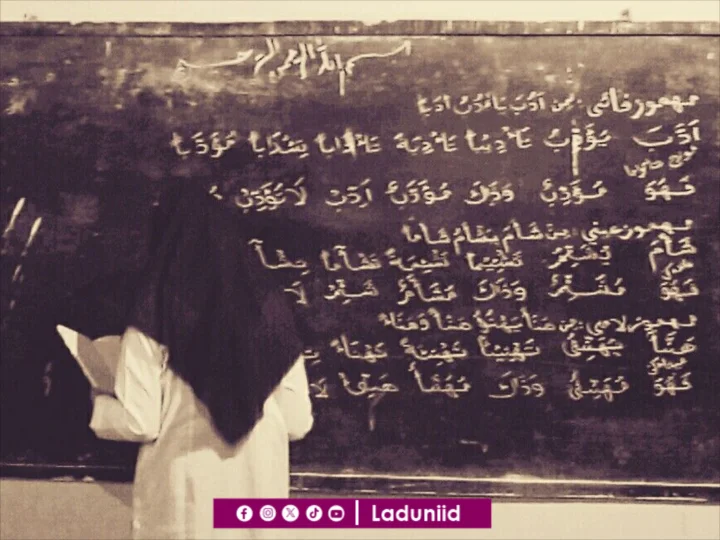 بسم الله الرحمن الرحيم
مهموز فائي : من اَدُبَ يَأْدُبُ اَدَبًا
اَدَّبَ يُؤَدِّبُ تَأْدِيْبًا تَأْدِبَةً تَأْدَابًا تِئْدَابًا مُؤَدَّبًا
فَهُوَ مُؤَدِّبٌ وَذَكَ مُؤَدَّبٌ اَدِّبْ لَا تُؤَدِّبْ
مهموز عيني : من شَأَمَ يَشْأَمُ شَأْمًا
شَأَّمَ يُشَئِّمُ تَشْئِيْمًا تَشْئِمَةً تَشْآمًا
فَهُوَ مُشَئِّمٌ وَذَكَ مُشَأَّمٌ شَئِّمْ لَا
مهموز لامي : من هَنَأَ
هَنَّأَ يُهَنِّئُ تَهْنِيْئًا تَهْنِئَةً تَهْنَاءً
فَهُوَ مُهَنِّئٌ وَذَكَ مُهَنَّأٌ لَا
Laduniid